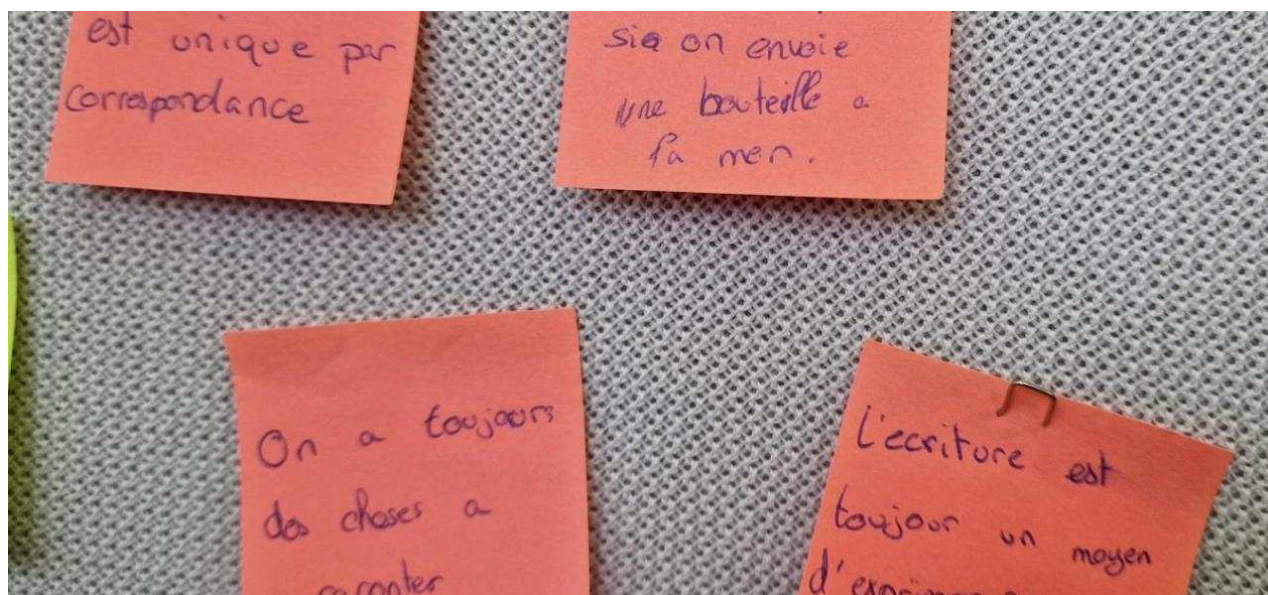 est unique par
correspondance
sia on envoie
une bouteille a
la mer.
On a toujours
des choses a
raconter
L'ecriture est
toujour un moyen
d'exprimer